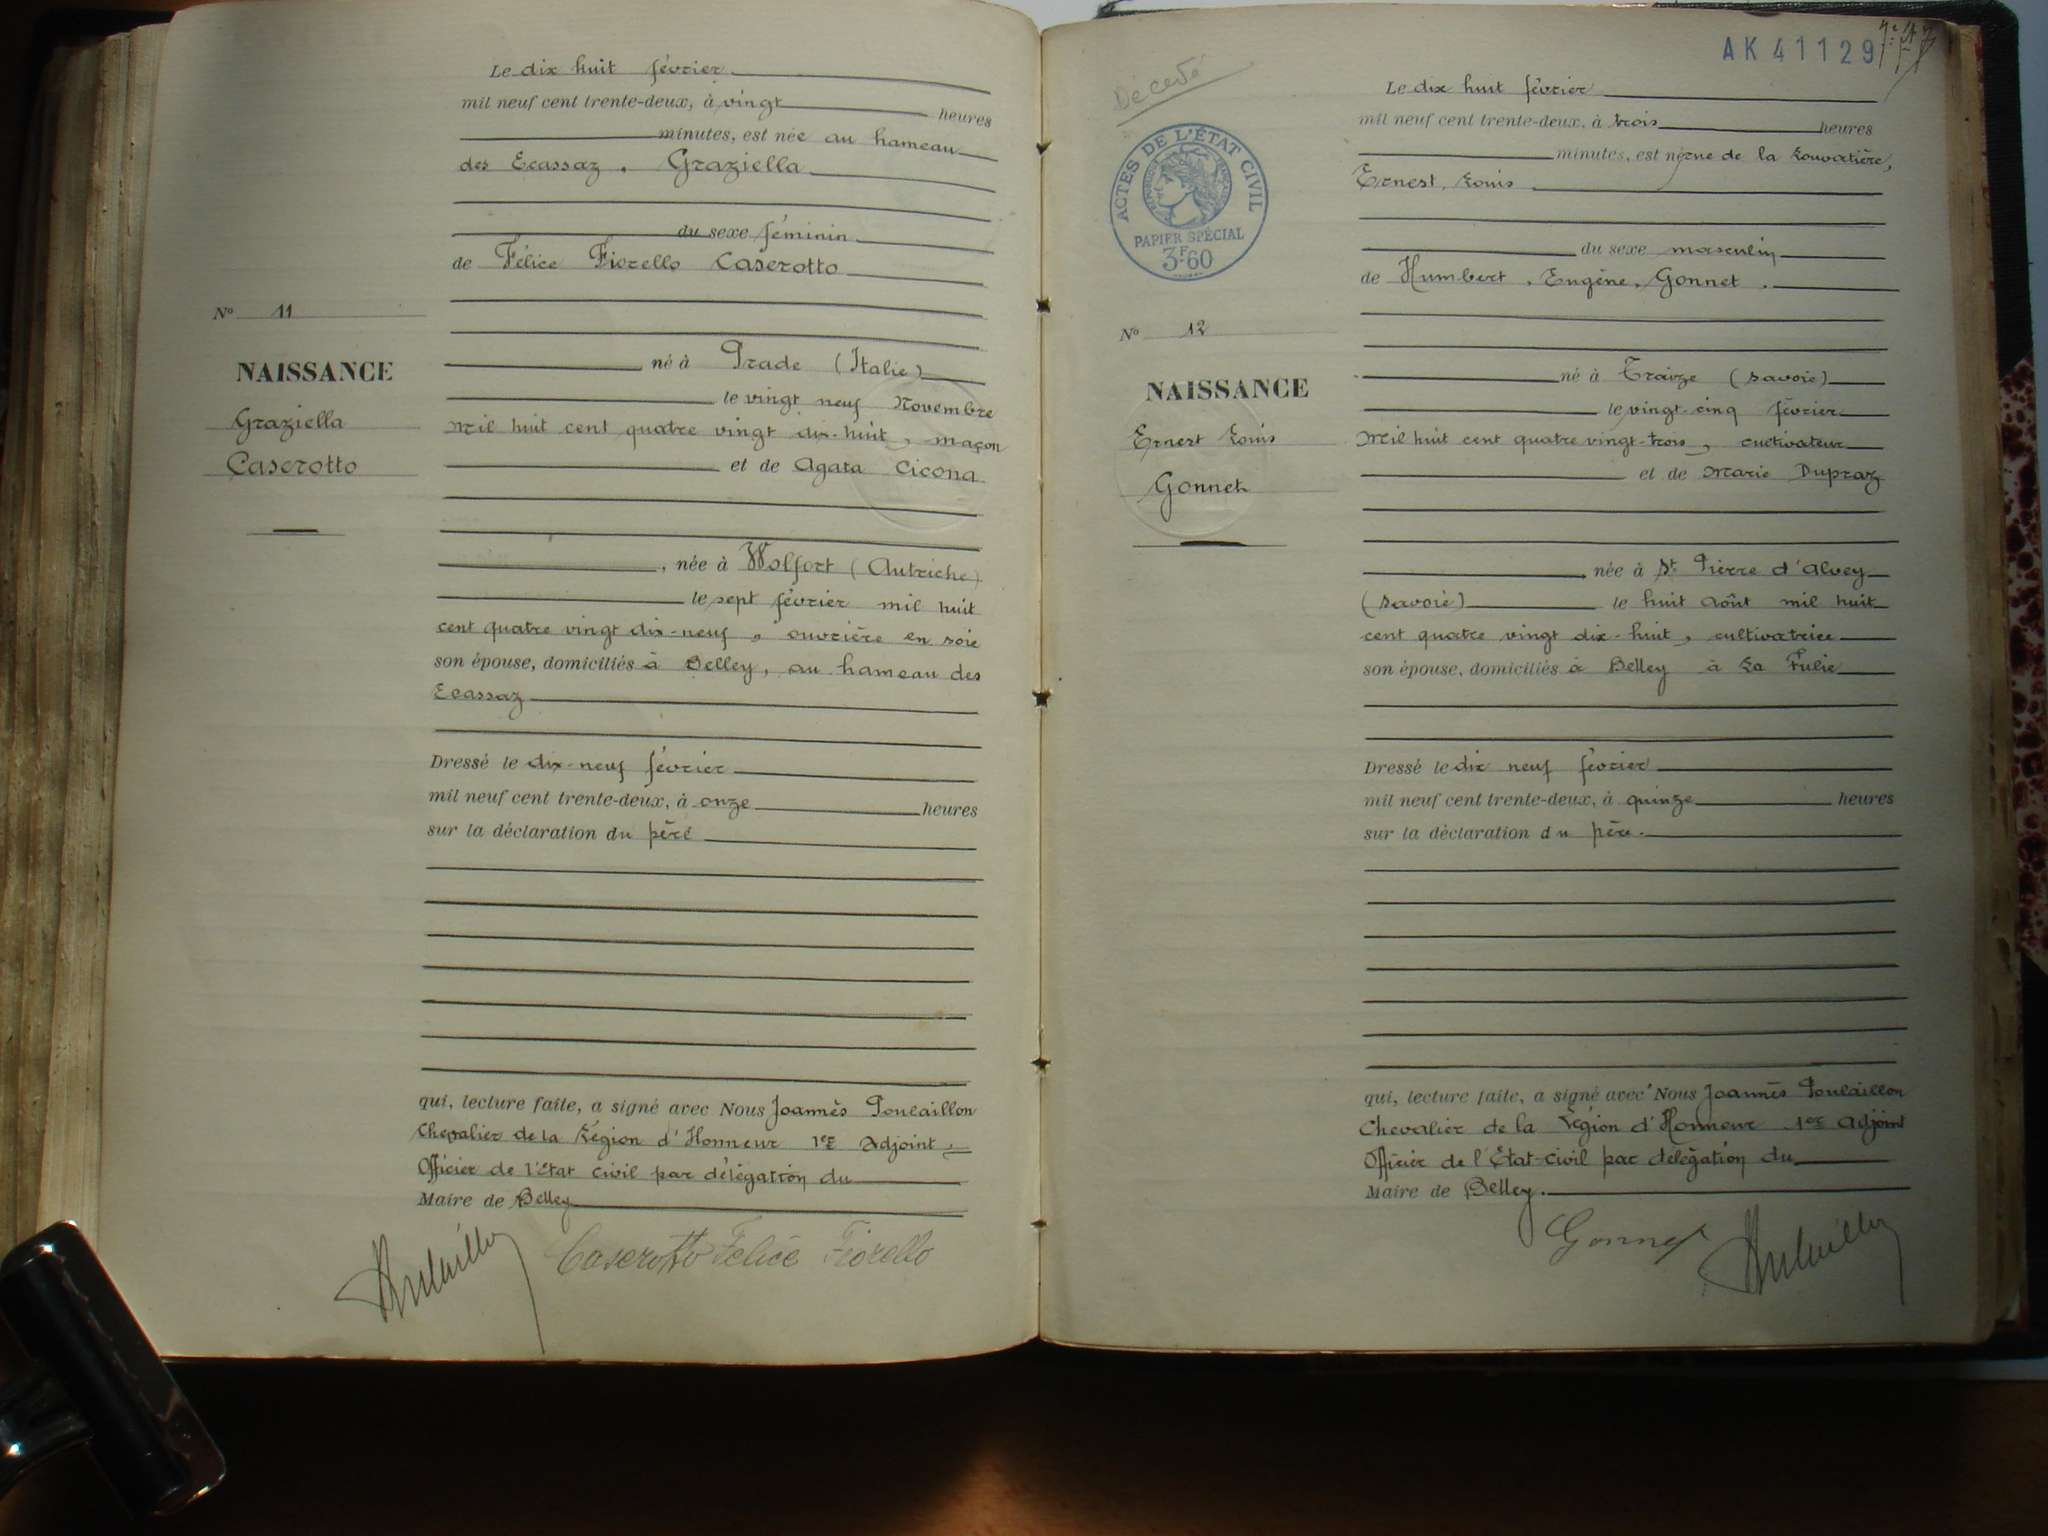 Le dix huit février
mil neuf cent trente-deux, à vingt heures
minutes, est née au hameau
des Ecassaz. Graziella
du sexe féminin
de Félice Fiorello Caserotto
né à Prade (Italie)
le vingt neuf Novembre
mil huit cent quatre vingt dix-huit, maçon
et de Agata Cicona
, née à Wolfort (Autriche)
le sept février mil huit
cent quatre vingt dix-neuf, ouvrière en soie
son épouse, domiciliés à Belley, au hameau des
Ecassaz
Dressé le dix-neuf février
mil neuf cent trente-deux, à onze heures
sur la déclaration du père
qui, lecture faite, a signé avec Nous Joannès Poulaillon
Chevalier de la Légion d'Honneur 1er Adjoint,
Officier de l'Etat Civil par délégation du
Maire de Belley
Caserotto Felice Fiorello
N° 11
NAISSANCE
Graziella
Caserotto
AK 41129
Décédé
ACTES DE L'ÉTAT CIVIL
RÉPUBLIQUE FRANÇAISE
PAPIER SPÉCIAL
3F.60
N° 12
NAISSANCE
Ernest Louis
Gonnet
Le dix huit février
mil neuf cent trente-deux, à trois heures
minutes, est né rue de la Louvatière,
Ernest, Louis
du sexe masculin
de Humbert, Eugène, Gonnet.
né à Traize (Savoie)
le vingt-cinq février
mil huit cent quatre vingt-trois, cultivateur
et de Marie Dupraz
, née à St Pierre d'Alvey
(Savoie) le huit Août mil huit
cent quatre vingt dix-huit, cultivatrice
son épouse, domiciliés à Belley à La Fulie
Dressé le dix neuf février
mil neuf cent trente-deux, à quinze heures
sur la déclaration du père.
qui, lecture faite, a signé avec Nous Joannès Poulaillon
Chevalier de la Légion d'Honneur 1er Adjoint
Officier de l'Etat-Civil par délégation du
Maire de Belley.
Gonnet